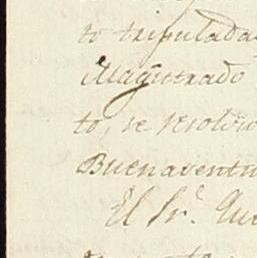 to tripulada
Magistrado
to, se resolvio
Buenaventu
El Sr.